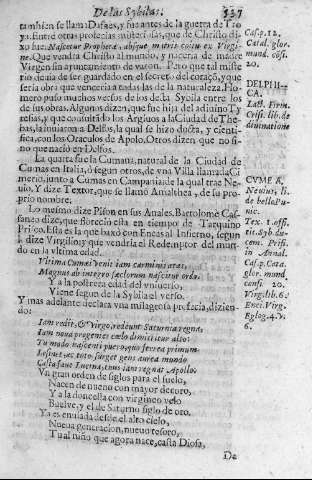 De las Sybilas. 537
tambien se llama Dafaes, y fue antes de la guerra de Tro
ya. Entre otras profecias misteriosas, que de Christo di-
xo fue. Nascetur Propheta, absque matris coitu ex Virgi-
ne. Que vendra Christo al mundo, y nacera de madre
Virgen sin ayuntamiento de varon. Pero que tal miste
rio devia de ser guardado en el secreto del coraçõ, y que
seria obra que venceria a todas las de la naturaleza. Ho-
mero puso muchos versos de los desta Sybila entre los
de sus obras. Algunos dizen, que fue hija del adiuino Ty
resias, y que consultādo los Argiuos a la Ciudad de The
bas, la invíaron a Delfos, la qual se hizo docta, y cienti-
fica, con los Oraculos de Apolo. Otros dizen que no si-
no que nacio en Delfos.
La quarta fue la Cumana, natural de la Ciudad de
Cumas en Italia, o segun otros, de vna Villa llamada Ci
merio, junto a Cumas en Campania de la qual trae Ne-
uio. Y dize Textor, que se llamò Amalthea, de su pro-
prio nombre.
Lo mesmo dize Pison en sus Anales. Bartolome Cas-
saneo dize, que florecio ella en tiempo de Tarquino
Prisco. Esta es la que baxò con Eneas al Infierno, segun
dize Virgilio: y que vendria el Redemptor del mun-
do en la vltima edad.
Vltima Cumæi venit iam carminis ætas,
Magnus ab integro sæclorum nascitur ordo.
Y a la postrera edad del vniuerso,
Viene segun de la Sybila el verso.
Y mas adelante declara vna milagrosa profecia, dizien-
do:
Iam redit, & Virgo, redeunt Saturnia regna,
Iam noua progenies cœlo dimittitur alto:
Tu modo nascenti puero, quo ferrea primum
casta faue Lucina, tuus iam regnat Apollo.
Vn gran orden de siglos para el suelo,
Nacen de nueuo con mayor decoro,
Y a la donzella con virgineo velo
Buelve, y el de Saturno siglo de oro.
Ya es enuiada desde el alto cielo,
Nueua generacion, nueuo tesoro,
Tu al niño que agora nace, casta Diosa,
De
Cas. p. 12.
Catal. glor.
mund. cōsi.
20.
DELPHI-
CA.
Lact. Firm.
Crisi. lib. de
diuinatione
CVME A,
Neuius, li.
de bello Pu-
nic.
Tex. i. offi-
tis. Syb. du-
cem. Pris.
in Annal.
Cas. p. Cata.
glor. mund.
consi. 20.
Virg. lib. 6.
Ener. Virg.
Eglog. 4. v.
6.